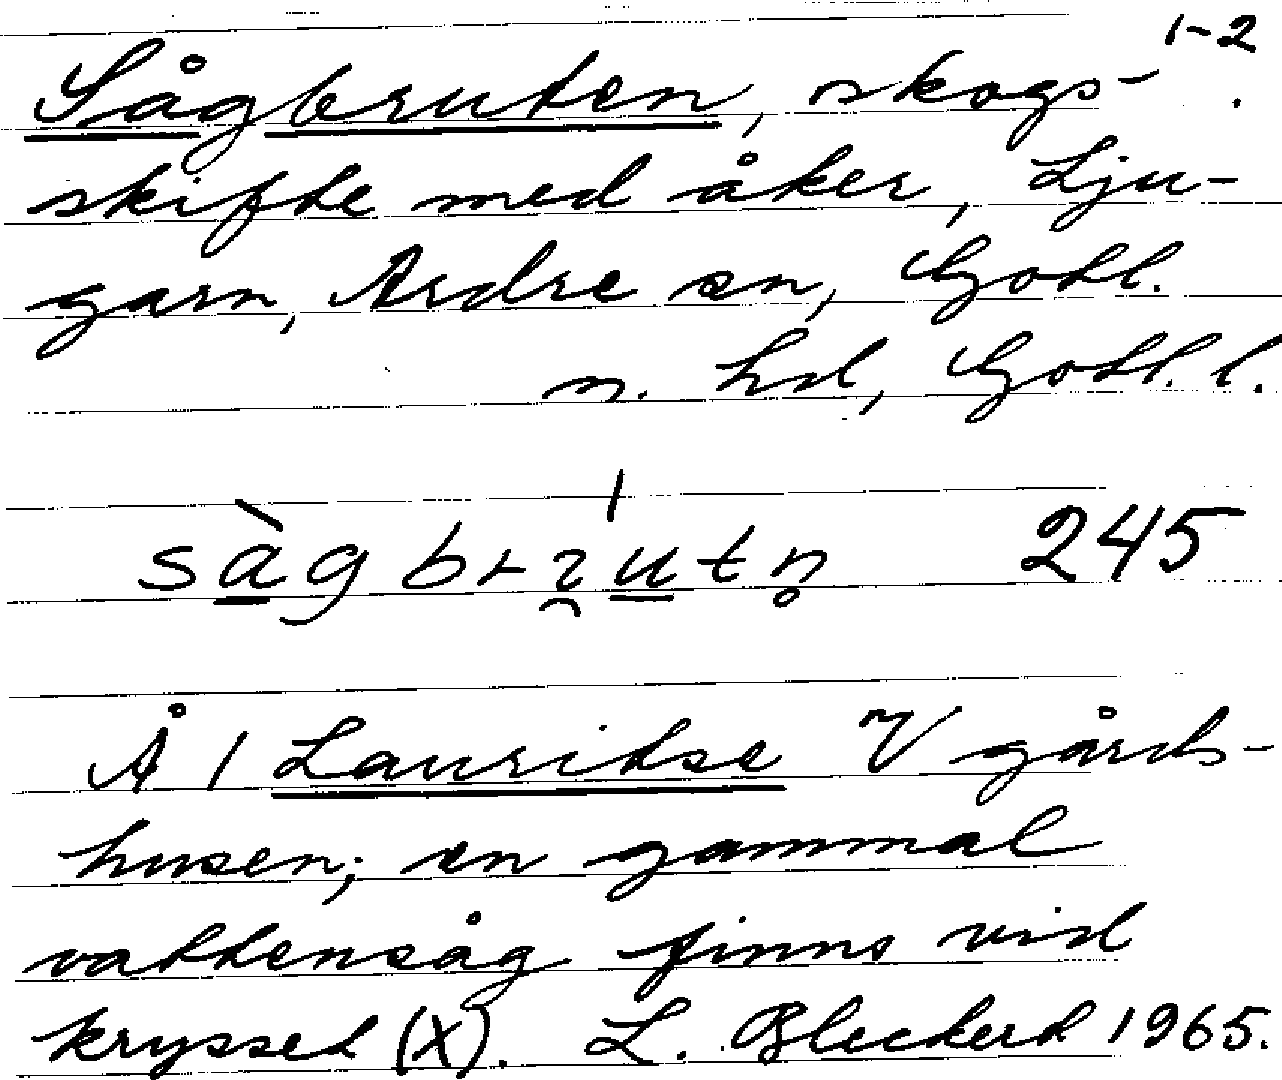 1-2
Sågbruten, skogs-.
skifte med åker, Lju-
garn, Ardre sn, Gotl.
n. hd, Gotl. l.
sàgbrꝛ̯utn̥ 245
Å 1 Lauritse V gårds-
husen; en gammal
vattensåg finns vid
krysset (X). L. Bleckert 1965.